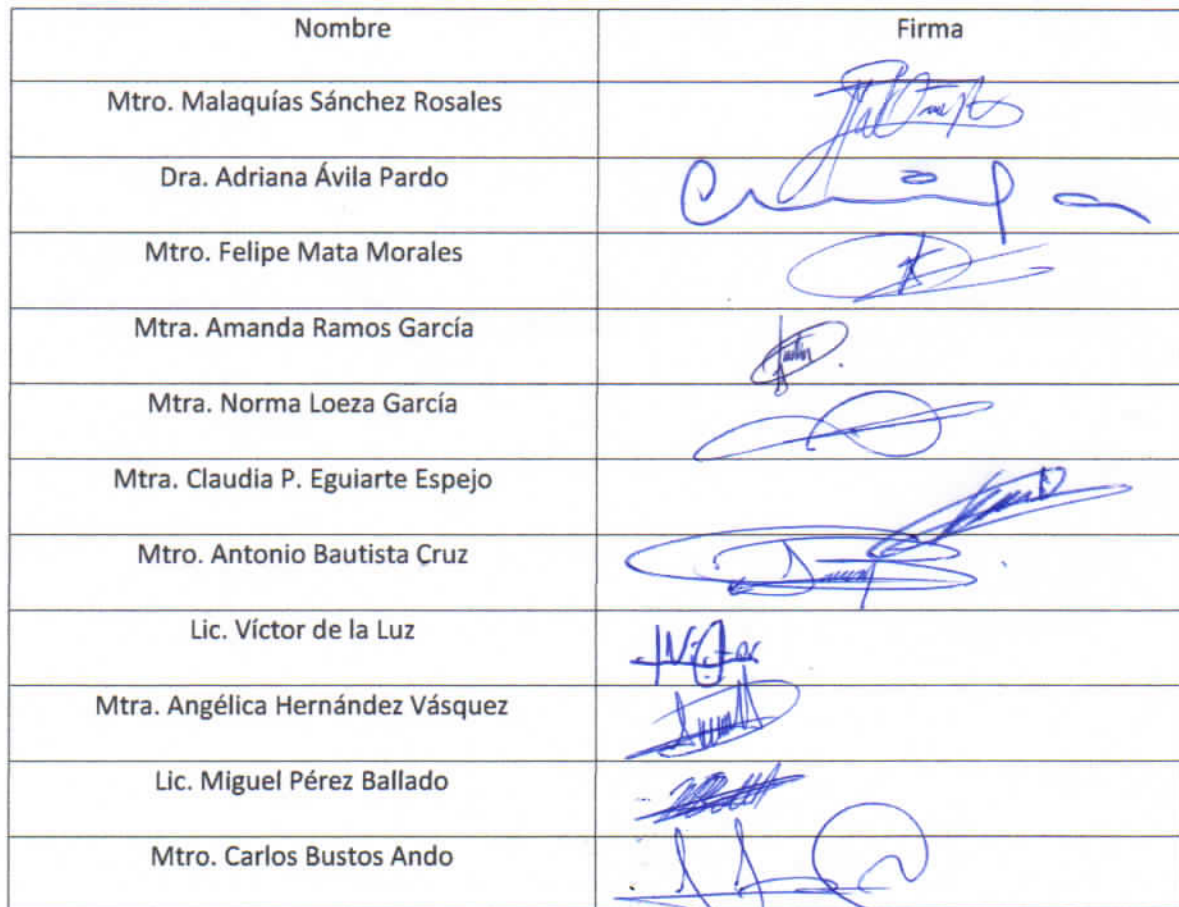 Nombre Firma
Mtro. Malaquías Sánchez Rosales
Dra. Adriana Ávila Pardo
Mtro. Felipe Mata Morales
Mtra. Amanda Ramos García
Mtra. Norma Loeza García
Mtra. Claudia P. Eguiarte Espejo
Mtro. Antonio Bautista Cruz
Lic. Víctor de la Luz
Mtra. Angélica Hernández Vásquez
Lic. Miguel Pérez Ballado
Mtro. Carlos Bustos Ando